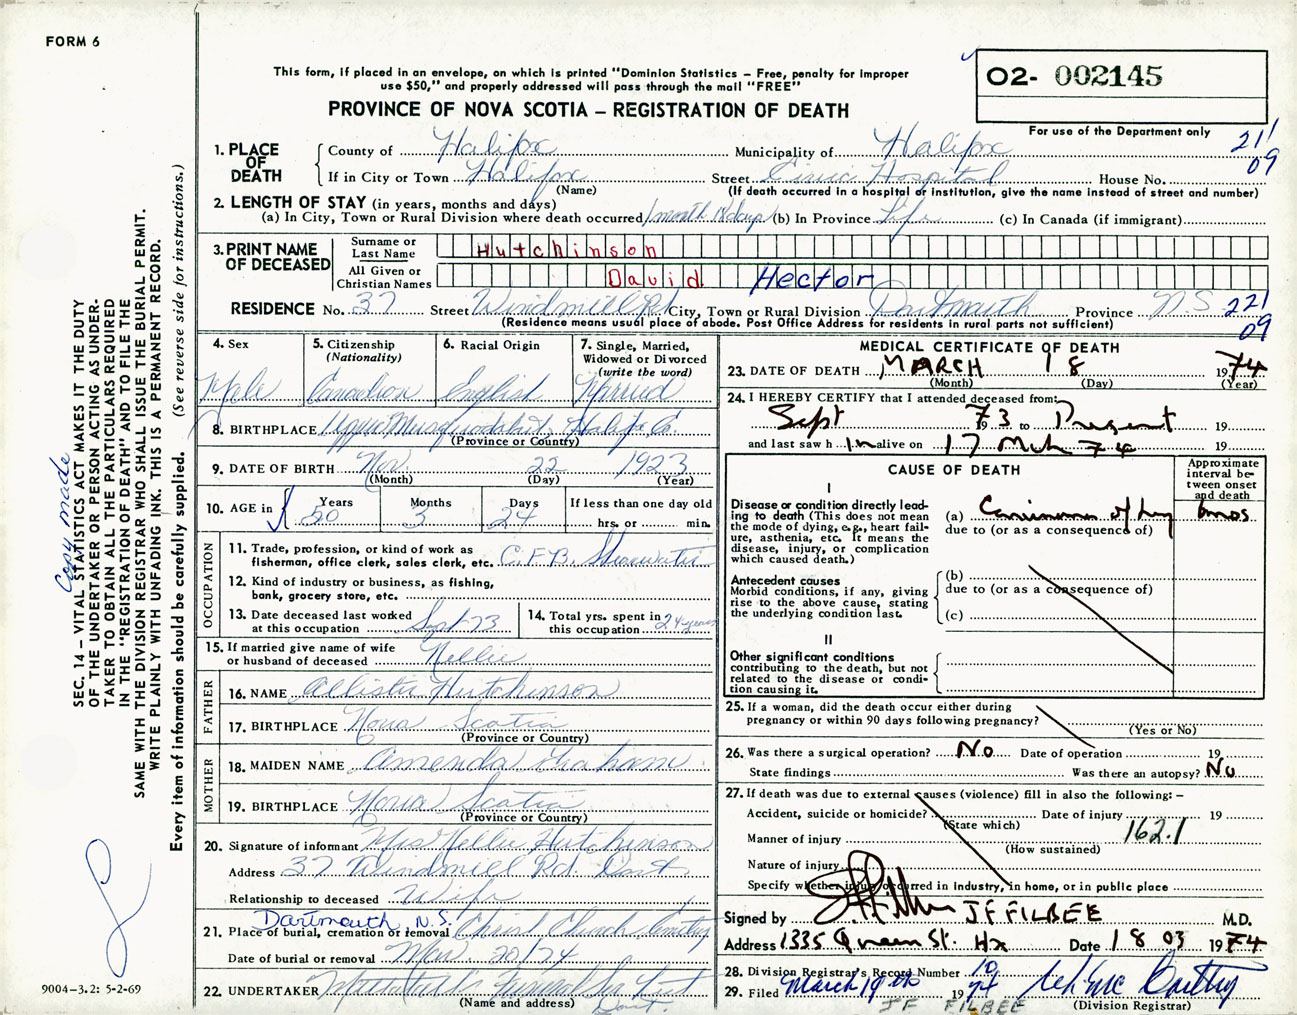 FORM 6
O2- 002145
This form, if placed in an envelope, on which is printed "Dominion Statistics – Free, penalty for improper
use $50," and properly addressed will pass through the mail "FREE"
PROVINCE OF NOVA SCOTIA – REGISTRATION OF DEATH
For use of the Department only
21/09
1. PLACE OF DEATH
County of Halifax Municipality of Halifax
If in City or Town Halifax Street Civic Hospital House No.
(Name) (If death occurred in a hospital or institution, give the name instead of street and number)
2. LENGTH OF STAY (in years, months and days)
(a) In City, Town or Rural Division where death occurred 1 month 18 days (b) In Province Life (c) In Canada (if immigrant)
3. PRINT NAME OF DECEASED
Surname or Last Name Hutchinson
All Given or Christian Names David Hector
RESIDENCE No. 37 Street Windmill Rd City, Town or Rural Division Dartmouth Province N.S.
221/09
(Residence means usual place of abode. Post Office Address for residents in rural parts not sufficient)
4. Sex
Male
5. Citizenship (Nationality)
Canadian
6. Racial Origin
English
7. Single, Married, Widowed or Divorced (write the word)
Married
8. BIRTHPLACE Upper Musquodoboit, Halifax Co.
(Province or Country)
9. DATE OF BIRTH Nov. 22 1923
(Month) (Day) (Year)
10. AGE in
Years Months Days If less than one day old
50 3 24 hrs. or min.
OCCUPATION
11. Trade, profession, or kind of work as
fisherman, office clerk, sales clerk, etc. C.F.B. Shearwater
12. Kind of industry or business, as fishing,
bank, grocery store, etc.
13. Date deceased last worked
at this occupation Sept-73
14. Total yrs. spent in
this occupation 24 years
15. If married give name of wife
or husband of deceased Nellie
FATHER
16. NAME Allister Hutchinson
17. BIRTHPLACE Nova Scotia
(Province or Country)
MOTHER
18. MAIDEN NAME Amenda Graham
19. BIRTHPLACE Nova Scotia
(Province or Country)
20. Signature of informant Mrs Nellie Hutchinson
Address 37 Windmill Rd. Dart
Relationship to deceased Wife
Dartmouth, N.S.
21. Place of burial, cremation or removal Christ Church Cemetery
Date of burial or removal Mar. 20/74
22. UNDERTAKER Funeral
(Name and address) Dart.
MEDICAL CERTIFICATE OF DEATH
23. DATE OF DEATH MARCH 18 1974
(Month) (Day) (Year)
24. I HEREBY CERTIFY that I attended deceased from:
Sept 73 to Present 19
and last saw h im alive on 17 Mch 74 19
CAUSE OF DEATH
Approximate interval between onset and death
I
Disease or condition directly leading
to death (This does not mean
the mode of dying, e.g., heart failure,
asthenia, etc. It means the
disease, injury, or complication
which caused death.)
(a) Carcinoma of lung 6mos
due to (or as a consequence of)
Antecedent causes
Morbid conditions, if any, giving
rise to the above cause, stating
the underlying condition last.
(b)
due to (or as a consequence of)
(c)
II
Other significant conditions
contributing to the death, but not
related to the disease or condition
causing it.
25. If a woman, did the death occur either during
pregnancy or within 90 days following pregnancy?
(Yes or No)
26. Was there a surgical operation? No Date of operation 19
State findings Was there an autopsy? No
27. If death was due to external causes (violence) fill in also the following: –
Accident, suicide or homicide? Date of injury 19
(State which)
Manner of injury 162.1
(How sustained)
Nature of injury
Specify whether injury occurred in industry, in home, or in public place
Signed by J F FILBEE M.D.
Address 1335 Queen St. Hx Date 18 03 1974
28. Division Registrar's Record Number 10
29. Filed March 19th 1974
(Division Registrar)
JF FILBEE
SEC. 14 – VITAL STATISTICS ACT MAKES IT THE DUTY
OF THE UNDERTAKER OR PERSON ACTING AS UNDERTAKER
TO OBTAIN ALL THE PARTICULARS REQUIRED
IN THE "REGISTRATION OF DEATH" AND TO FILE THE
SAME WITH THE DIVISION REGISTRAR WHO SHALL ISSUE THE BURIAL PERMIT.
WRITE PLAINLY WITH UNFADING INK. THIS IS A PERMANENT RECORD.
Every item of information should be carefully supplied. (See reverse side for instructions.)
Copy made
9004-3.2: 5-2-69